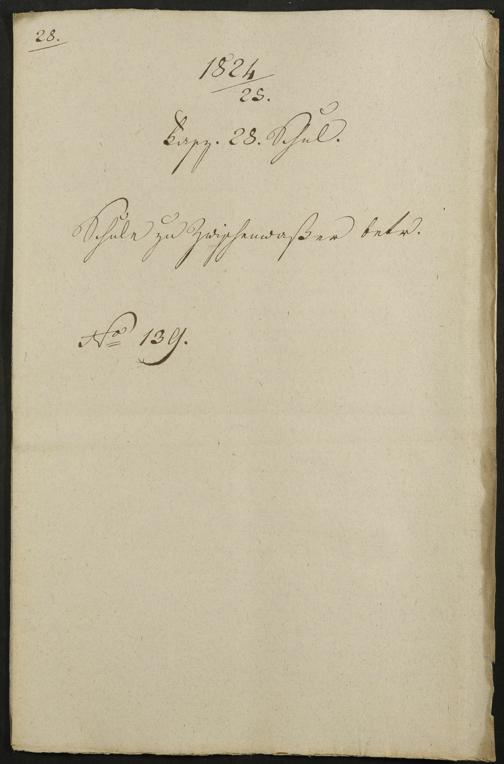 28.
1824
25.
Kapp. 28. Schul.
Schule zu Zwischenwaßer betr.
No 139.